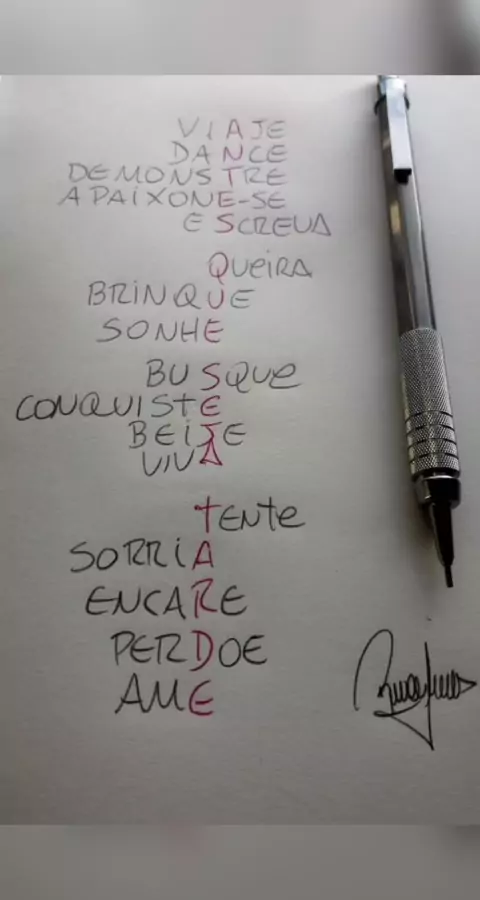 VIAJE
DANCE
DEMONSTRE
APAIXONE-SE
ESCREVA
QUEIRA
BRINQUE
SONHE
BUSQUE
CONQUISTE
BEIJE
VIVA
TENTE
SORRIA
ENCARE
PERDOE
AME